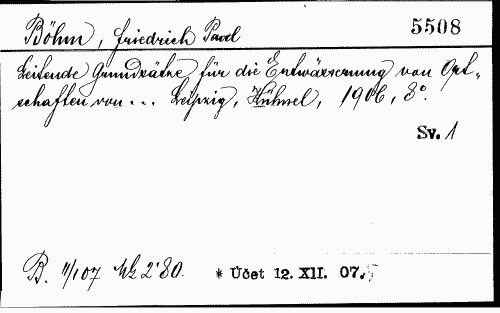 Böhm, Friedrich Paul 5508
Leitende Grundsätze für die Entwässerung von Ort-
schaften von ... Leipzig, Hühmel, 1906, 8°.
Sv. 1
B. 11/107 Mk 2·80. * Účet 12. XII. 07.